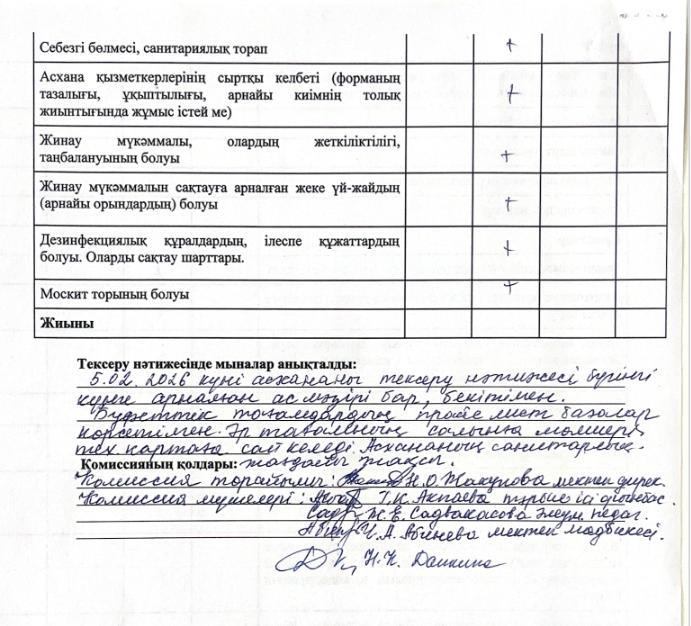 Себезгі бөлмесі, санитариялық торап +
Асхана қызметкерлерінің сыртқы келбеті (форманың
тазалығы, ұқыптылығы, арнайы киімнің толық
жиынтығында жұмыс істей ме) +
Жинау мүкәммалы, олардың жеткіліктілігі,
таңбалануының болуы +
Жинау мүкәммалын сақтауға арналған жеке үй-жайдың
(арнайы орындардың) болуы +
Дезинфекциялық құралдардың, ілеспе құжаттардың
болуы. Оларды сақтау шарттары. +
Москит торының болуы +
Жиыны
Тексеру нәтижесінде мыналар анықталды:
5.02.2026 күні асхананы тексеру нәтижесі бүгінгі
күнге арналған ас мәзірі бар, бекітілген.
Буфеттік тағамдардың прайс лист бағалар
көрсетілген. Әр тағамның салынға мөлшері
тех картаға сай келеді. Асхананың санитарлық
Комиссияның қолдары: жағдайы жақсы.
Комиссия төрайымы: Н.О. Жакупова мектеп дирек.
Комиссия мүшелері: Т.К. Акпаева тәрбие ісі
Ж.Е. Садвакасова әлеум. педаг.
Ч.А. Абенева мектеп медбикесі.
Н.К. Дашкина